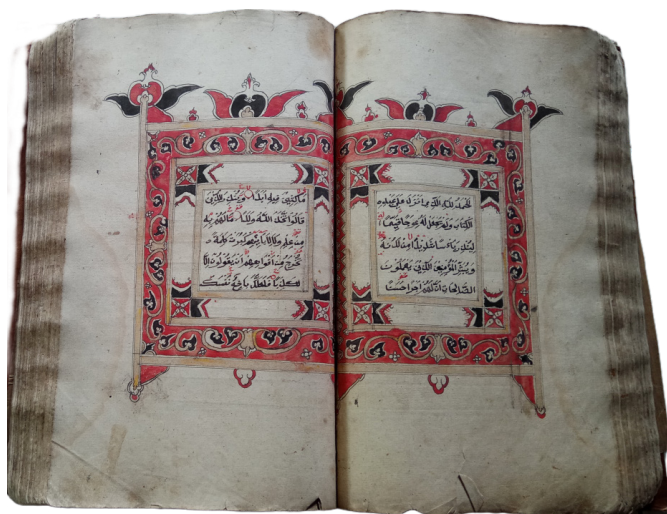 الحمد لله الذي انزل على عبده
الكتاب ولم يجعل له عوجا قيما
لينذر باسا شديدا من لدنه
ويبشر المؤمنين الذين يعملون
الصالحات ان لهم اجرا حسنا
ماكثين فيه ابدا وينذر الذين
قالوا اتخذ الله ولدا ما لهم به
من علم ولا لابائهم كبرت كلمة
تخرج من افواههم ان يقولون الا
كذبا فلعلك باخع نفسك